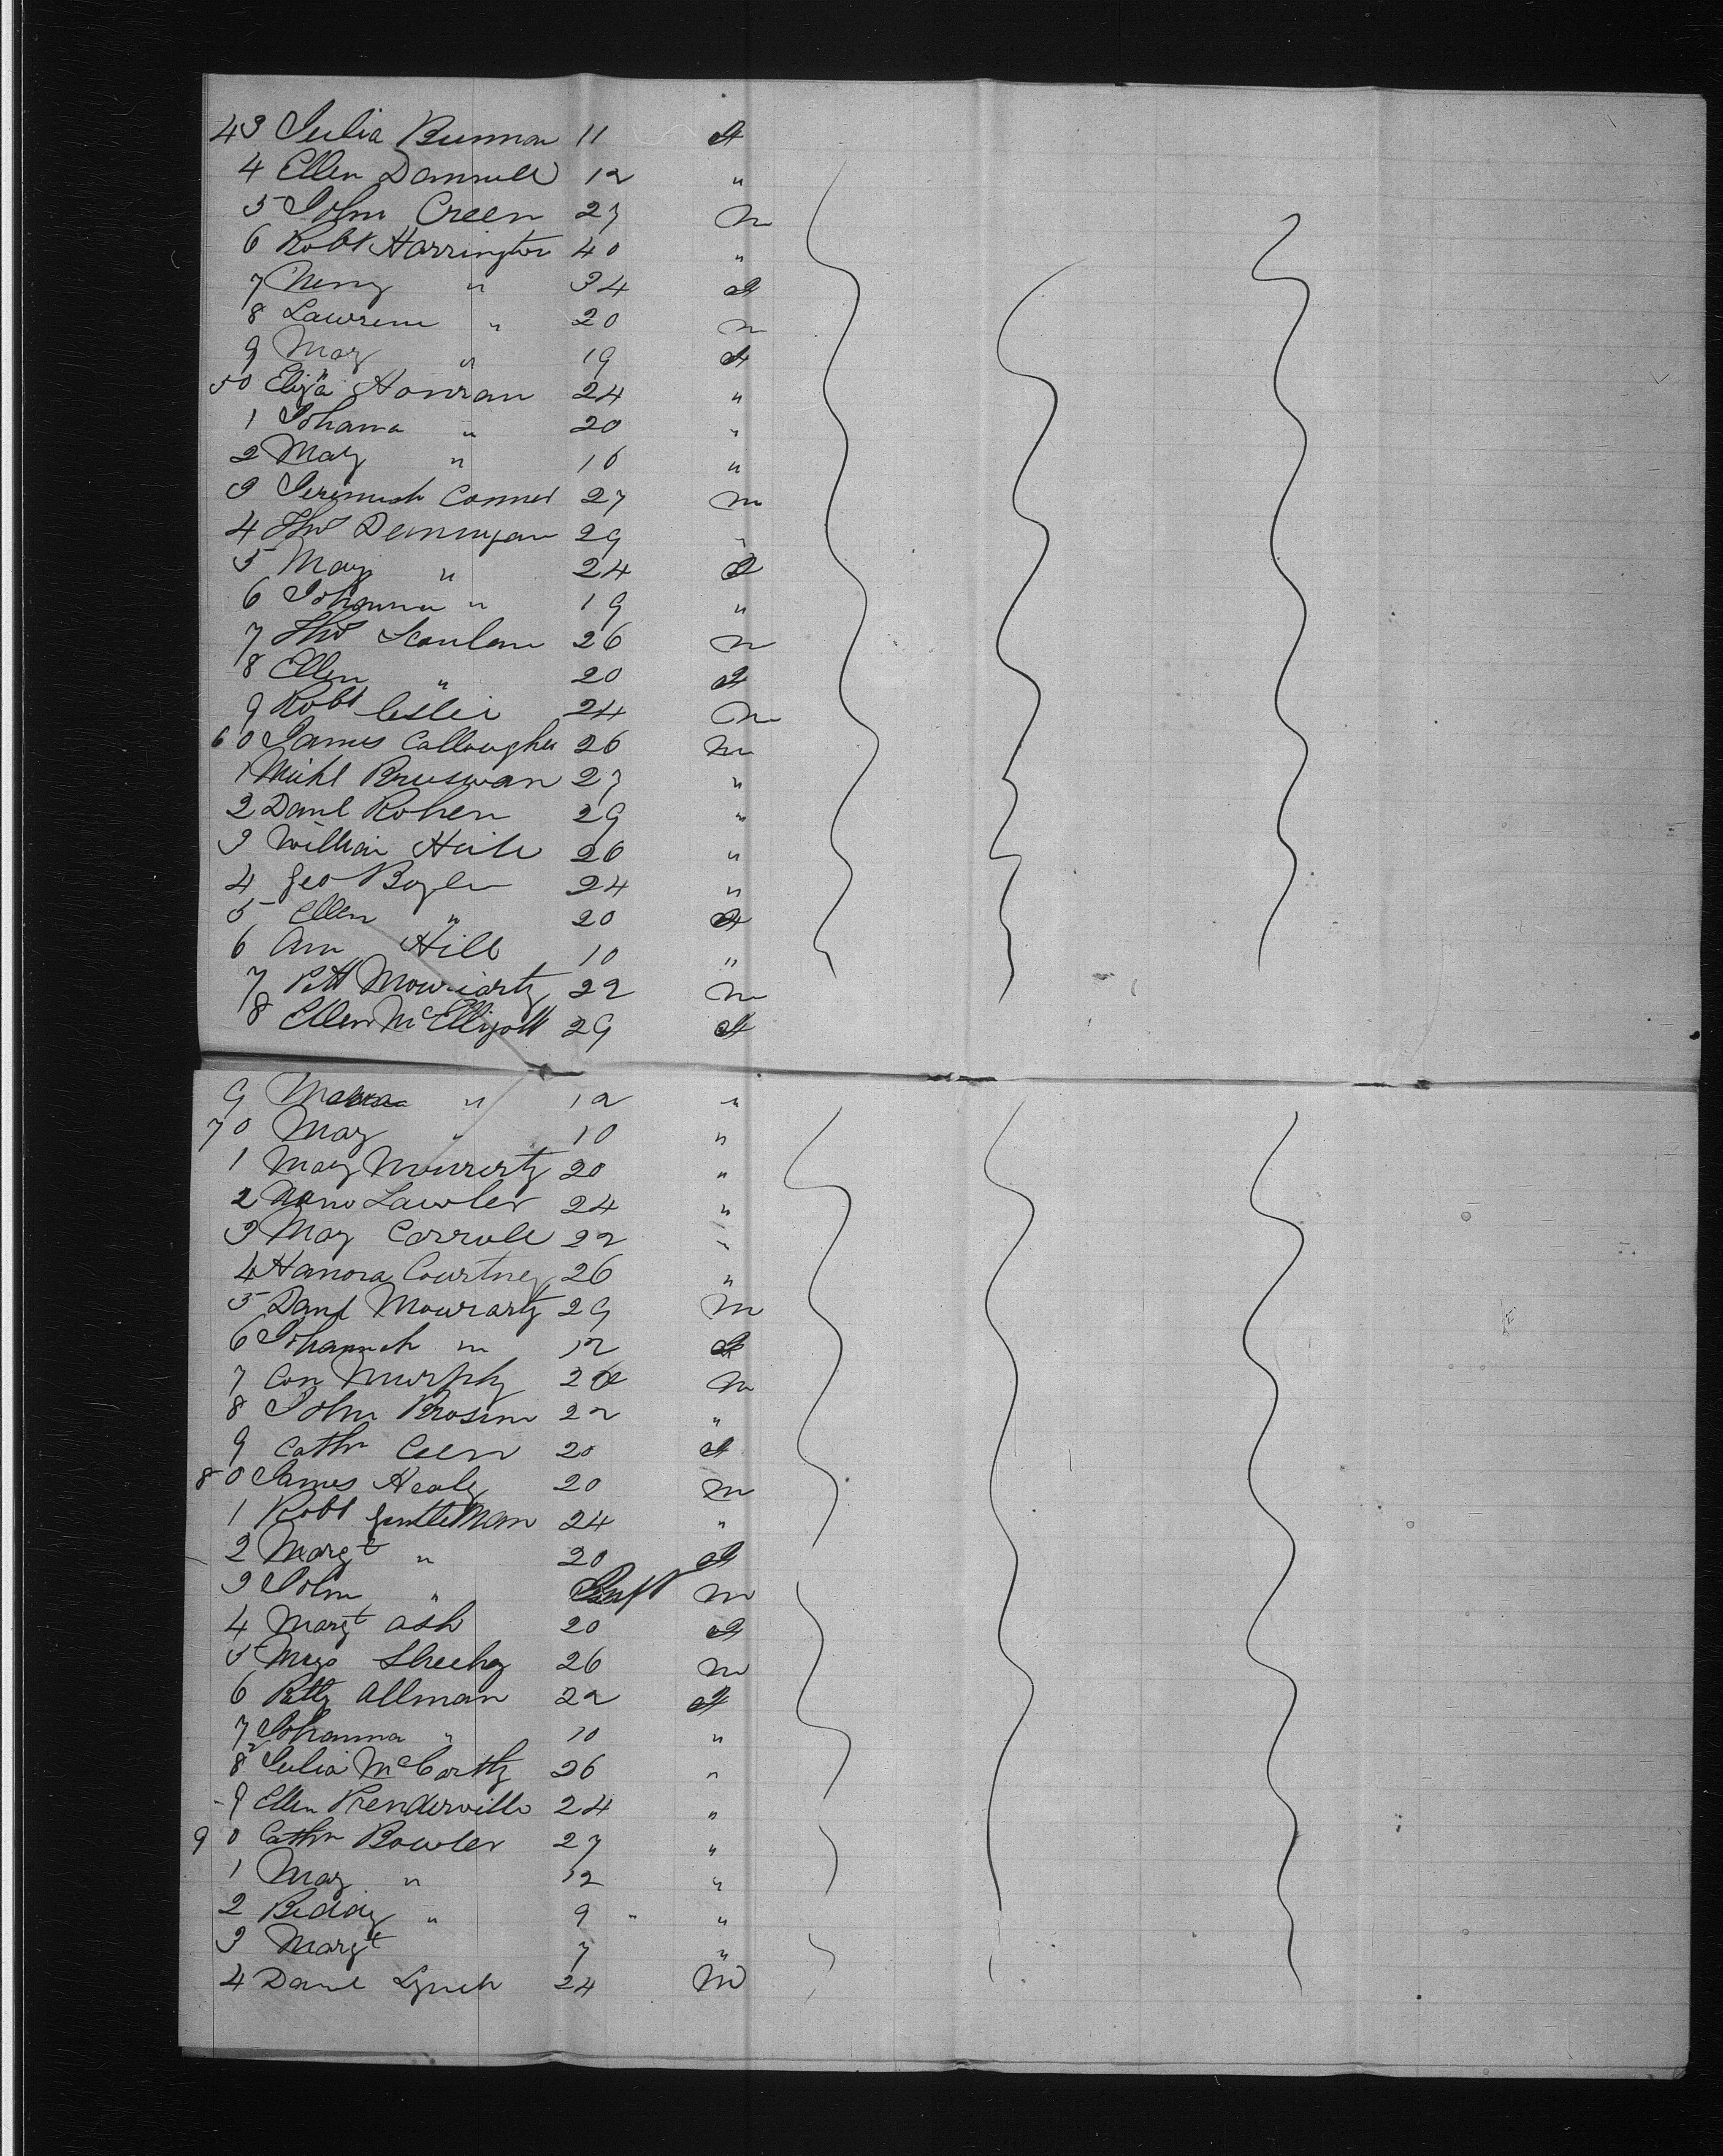 43 Julia Bunnan 11 f
4 Ellen Dannell 12 "
5 John Creen 27 m
6 Robt Harrington 40 "
7 " 34 f
8 Lawrence " 20 m
9 Mary " 19 f
50 Eliza Honran 24 "
1 Johana " 20 "
2 Mary " 16 "
3 Jeremiah Conner 27 m
4 Thos 29 "
5 Mary " 24 f
6 Johanna " 19 "
7 Thos Scanlan 26 m
8 Ellen " 20 f
9 Robt Leslie 24 m
60 James Callougher 26 m
1 Michl Brusnan 27 "
2 Danl Rohen 29 "
3 William 26 "
4 Geo Boyle 24 "
5 Ellen " 20 f
6 Ann Hill 10 "
7 Patt Mowriarty 22 m
8 Ellen McElligott 29 f
9 " 12 "
70 Mary " 10 "
1 Mary 20 "
2 Lawler 24 "
3 Mary Carroll 22 "
4 Hanora Courtney 26 "
5 Danl Mowrarty 29 m
6 Johannah " 12 f
7 Con Murphy m
8 John Brosnn 22 "
9 Cathn Ceen 20 f
80 James Healy 20 m
1 Robt Gentleman 24 "
2 Margt " 20 f
3 John " Inft m
4 Margt Ash 20 f
5 Sheehy 26 m
6 Betty Allman 22 f
7 Johanna " 10 "
8 Julia McCarthy 26 "
9 Ellen Prenderville 24 "
90 Cathn Bowler 27 "
1 Mary " 12 "
2 Biddy " 9 " "
3 Margt 7 "
4 Danl Lynch 24 m